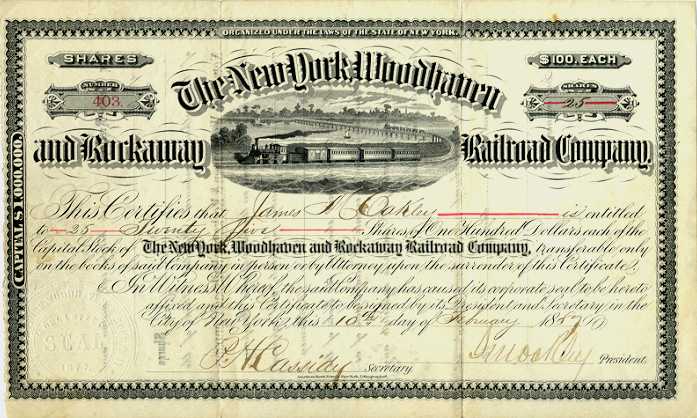 ORGANIZED UNDER THE LAWS OF THE STATE OF NEW YORK.
SHARES
$100. EACH
NUMBER
403.
SHARES
25
The New York, Woodhaven
and Rockaway Railroad Company.
CAPITAL $1,000,000.
This Certifies that James N Oakley is entitled
to 25 Twenty Five Shares of One Hundred Dollars each of the
Capital Stock of The New York, Woodhaven and Rockaway Railroad Company, transferable only
on the books of said Company in person or by Attorney upon the surrender of this Certificate.
In Witness Whereof, the said Company has caused its corporate seal to be hereto
affixed and this Certificate to be signed by its President and Secretary, in the
City of New York, this 10th day of February 18
SEAL
1877
P. H. Cassidy Secretary
President.